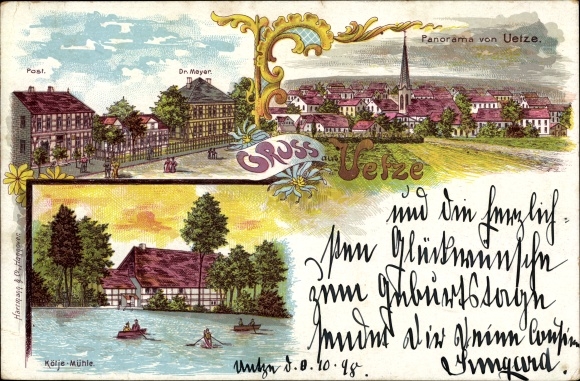 Post.
Dr. Meyer.
Panorama von Uetze.
GRUSS aus Uetze
und die herzlich-
sten Glückwünsche
zum Geburtstage
sendet Dir Deine Cousine
Irmgard.
Kölje-Mühle.
Uetze d. 8. 10. 98.